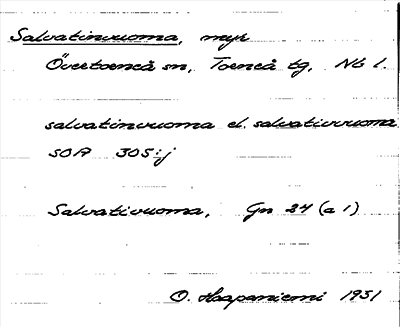 Salvatinvuoma, myr
Övertorneå sn, Torneå tg, Nb l.
salvatinvuoma el. salvativvuoma
SOA 305:j
Salvativuoma, Gn 24 (a 1)
O. Haapaniemi 1931